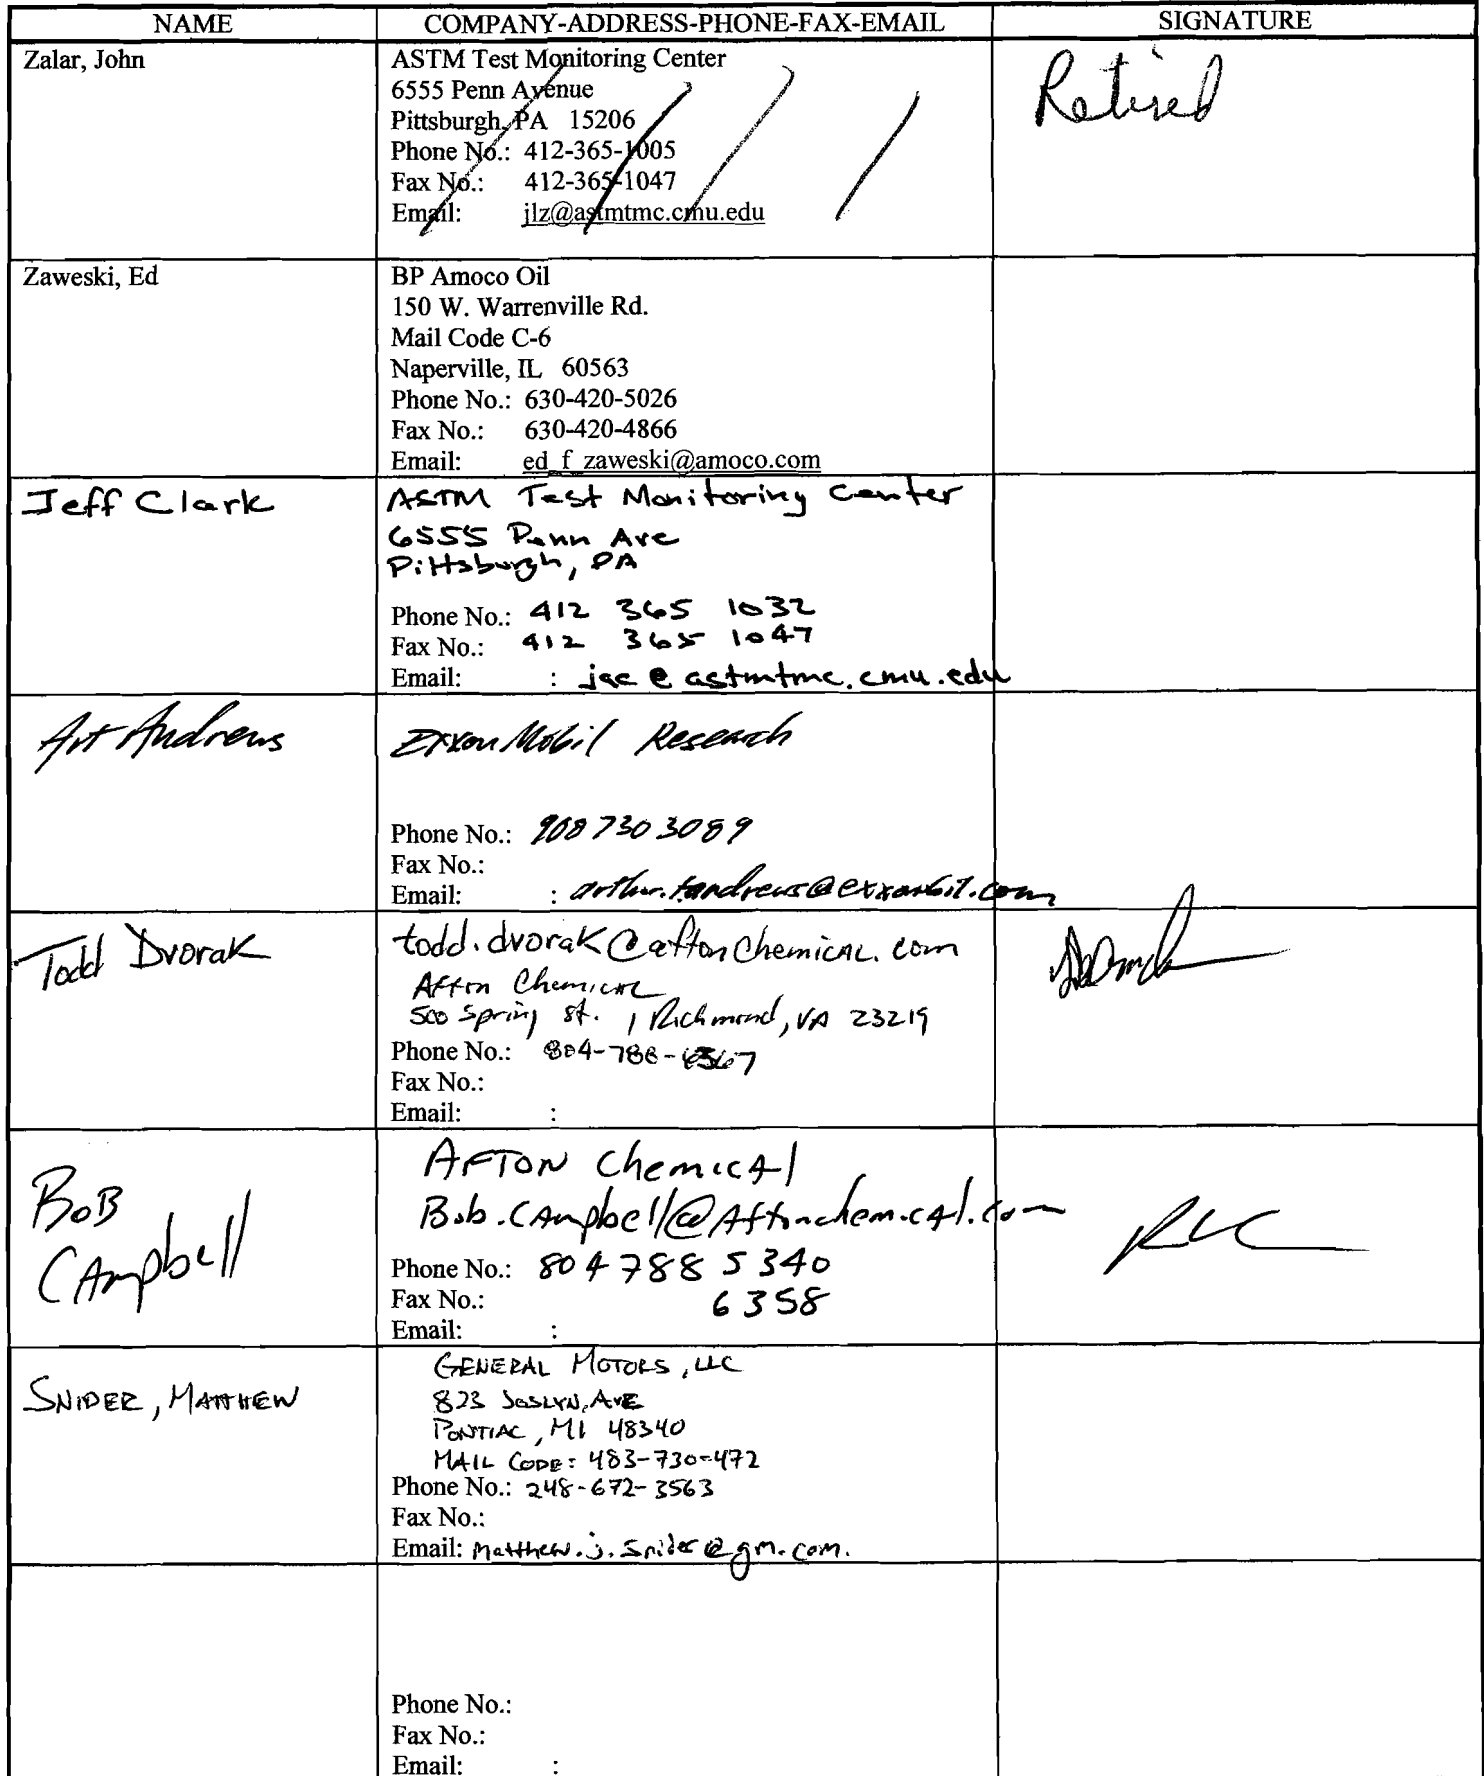 NAME COMPANY-ADDRESS-PHONE-FAX-EMAIL SIGNATURE
Zalar, John ASTM Test Monitoring Center Retired
6555 Penn Avenue
Pittsburgh, PA 15206
Phone No.: 412-365-1005
Fax No.: 412-365-1047
Email: jlz@astmtmc.cmu.edu
Zaweski, Ed BP Amoco Oil
150 W. Warrenville Rd.
Mail Code C-6
Naperville, IL 60563
Phone No.: 630-420-5026
Fax No.: 630-420-4866
Email: ed_f_zaweski@amoco.com
Jeff Clark ASTM Test Monitoring Center
6555 Penn Ave
Pittsburgh, PA
Phone No.: 412 365 1032
Fax No.: 412 365 1047
Email: : jac@astmtmc.cmu.edu
Art Andrews ExxonMobil Research
Phone No.: 908 730 3089
Fax No.:
Email: :
Todd Dvorak todd.dvorak@aftonchemical.com
Afton Chemical
500 Spring St. , Richmond, VA 23219
Phone No.: 804-788-6367
Fax No.:
Email: :
BoB CAmpbell AFTON ChemicAl
Bob.CAmpbell@AftonchemicAl.com
Phone No.: 804 788 5340
Fax No.: 6358
Email: :
SNIDER, MATTHEW GENERAL MOTORS, LLC
823 JOSLYN AVE
PONTIAC, MI 48340
MAIL CODE: 483-730-472
Phone No.: 248-672-3563
Fax No.:
Email: Matthew.j.Snider@gm.com.
Phone No.:
Fax No.:
Email: :